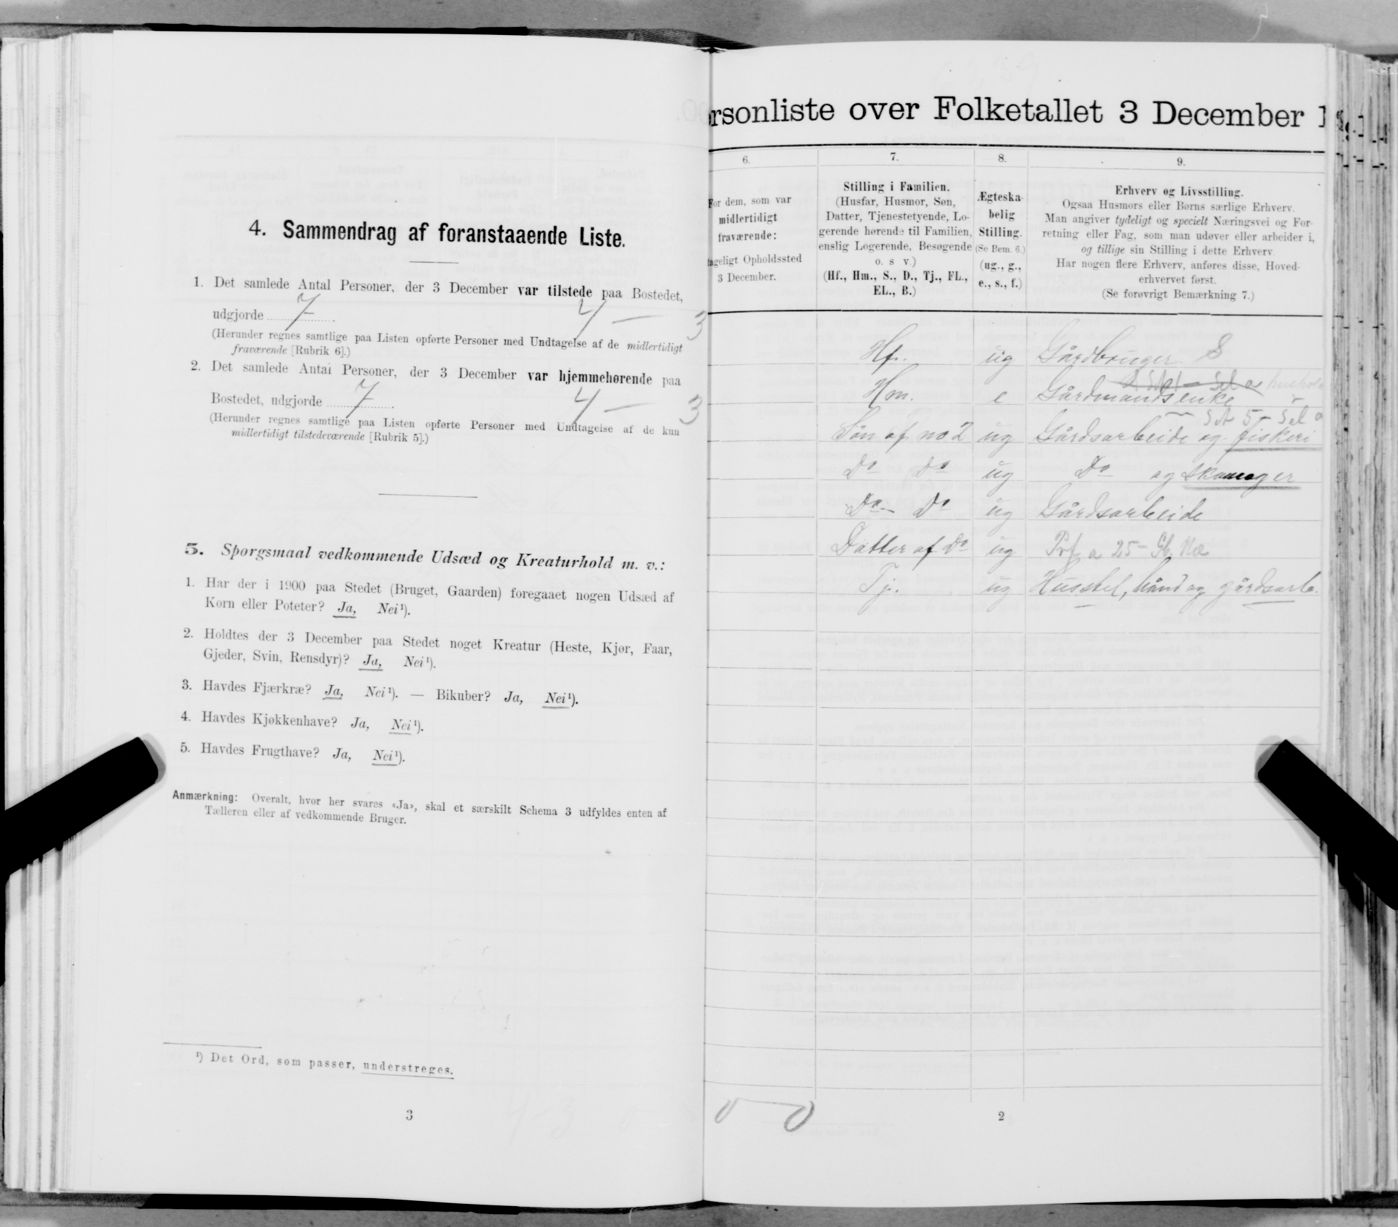 4. Sammendrag af foranstaaende Liste.
1. Det samlede Antal Personer, der 3 December var tilstede paa Bostedet,
udgjorde 7 4 — 3
(Herunder regnes samtlige paa Listen opførte Personer med Undtagelse af de midlertidigt
fraværende [Rubrik 6].)
2. Det samlede Antal Personer, der 3 December var hjemmehørende paa
Bostedet, udgjorde 7 4 — 3
(Herunder regnes samtlige paa Listen opførte Personer med Undtagelse af de kun
midlertidigt tilstedeværende [Rubrik 5].)
5. Spørgsmaal vedkommende Udsæd og Kreaturhold m. v.:
1. Har der i 1900 paa Stedet (Bruget, Gaarden) foregaaet nogen Udsæd af
Korn eller Poteter? Ja, Nei¹).
2. Holdtes der 3 December paa Stedet noget Kreatur (Heste, Kjør, Faar,
Gjeder, Svin, Rensdyr)? Ja, Nei¹).
3. Havdes Fjærkræ? Ja, Nei¹). — Bikuber? Ja, Nei¹).
4. Havdes Kjøkkenhave? Ja, Nei¹).
5. Havdes Frugthave? Ja, Nei¹).
Anmærkning: Overalt, hvor her svares «Ja», skal et særskilt Schema 3 udfyldes enten af
Tælleren eller af vedkommende Bruger.
¹) Det Ord, som passer, understreges.
3
rsonliste over Folketallet 3 December 1
6. 7. 8. 9.
For dem, som var
midlertidigt
fraværende:
ageligt Opholdssted
3 December.
Stilling i Familien.
(Husfar, Husmor, Søn,
Datter, Tjenestetyende, Lo-
gerende hørende til Familien,
enslig Logerende, Besøgende
o. s v.)
(Hf., Hm., S., D., Tj., FL.,
EL., B.)
Ægteska-
belig
Stilling.
(Se Bem. 6.)
(ug., g.,
e., s., f.)
Erhverv og Livsstilling.
Ogsaa Husmors eller Børns særlige Erhverv.
Man angiver tydeligt og specielt Næringsvei og For-
retning eller Fag, som man udøver eller arbeider i,
og tillige sin Stilling i dette Erhverv
Har nogen flere Erhverv, anføres disse, Hoved-
erhvervet først.
(Se forøvrigt Bemærkning 7.)
Hf. ug Gårdbruger S
Hm. e Gårdmandsenke
Søn af no 2 ug Gårdsarbeide og fiskeri
Do Do ug Do og skomager
Do Do ug Gårdsarbeide
Datter af Do ug
Tj. ug Husstel, hånd og gårdsarb.
2